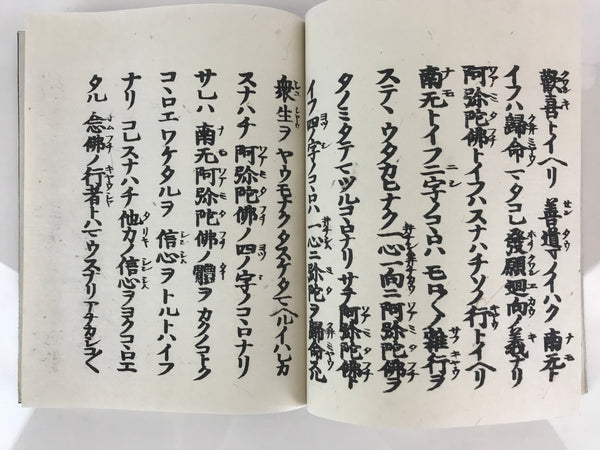 歡喜トイヘリ 善導ノイハク 南无ト
イフハ歸命マタコレ發願廻向ノ義ナリ
阿弥陀佛トイフハスナハチソノ行トイヘリ
南无トイフ二字ノコヽロハ モロ〳〵ノ雜行ヲ
ステヽ ウタカヒナク 一心一向ニ阿弥陀佛ヲ
タノミタテマツルコヽロナリ サテ阿弥陀佛ト
イフ四ノ字ノコヽロハ 一心ニ弥陀ヲ歸命スル
衆生ヲ ヤウモナクタスケタマヘルイハレカ
スナハチ 阿弥陀佛ノ四ノ字ノコヽロナリ
サレハ 南无阿弥陀佛ノ體ヲ カクノコトク
コヽロエワケタルヲ 信心ヲトルトハイフ
ナリ コレスナハチ他力ノ信心ヲヨクコヽロエ
タル 念佛ノ行者トハマウスナリ アナカシコ〳〵